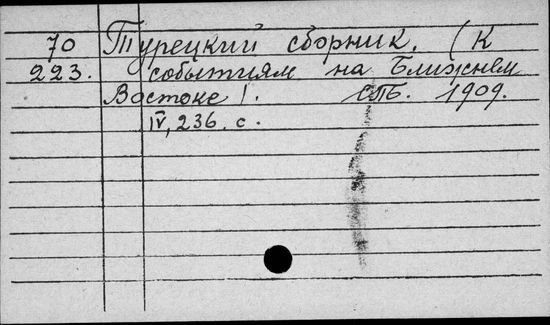 70 Турецкий сборник. (К
223. событиям на Ближнем
Востоке). СПБ. 1909.
IV, 236. с.